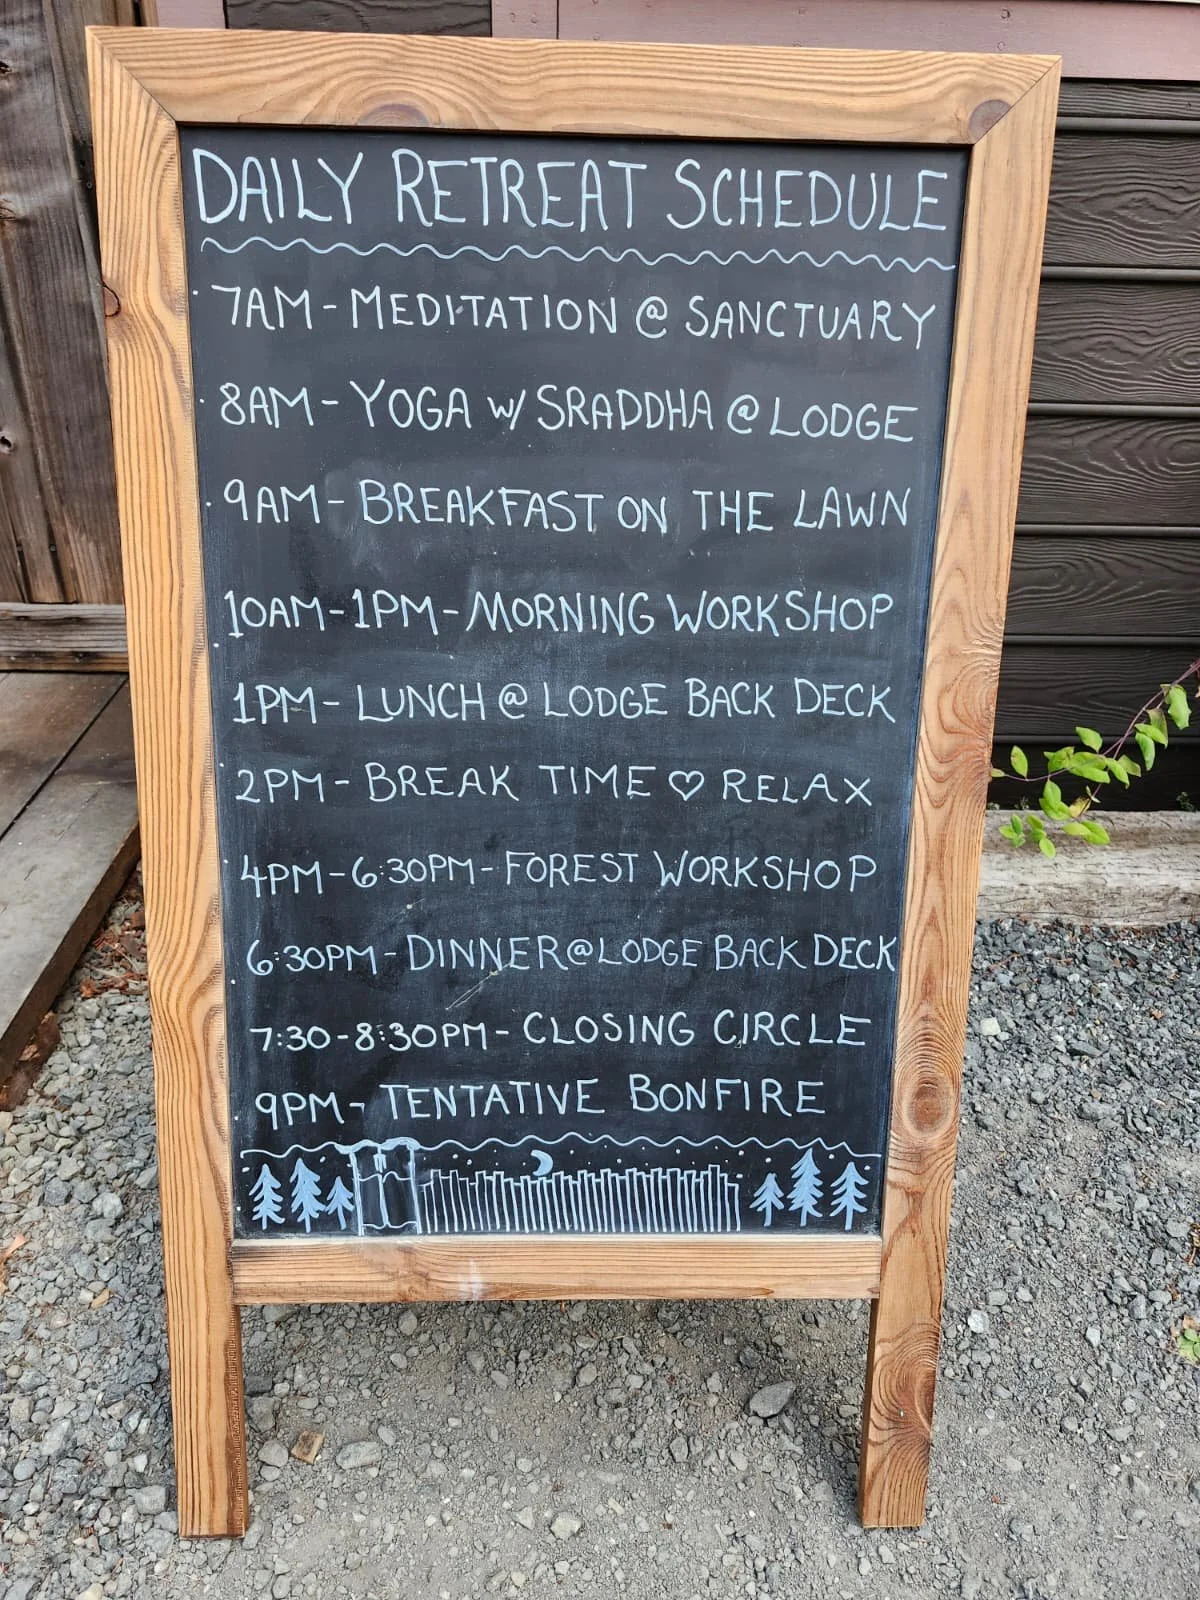 DAILY RETREAT SCHEDULE
7AM - MEDITATION @ SANCTUARY
8AM - YOGA W/ SRADDHA @ LODGE
9AM - BREAKFAST ON THE LAWN
10AM - 1PM - MORNING WORKSHOP
1PM - LUNCH @ LODGE BACK DECK
2PM - BREAK TIME ♡ RELAX
4PM - 6:30PM - FOREST WORKSHOP
6:30PM - DINNER @ LODGE BACK DECK
7:30 - 8:30PM - CLOSING CIRCLE
9PM - TENTATIVE BONFIRE